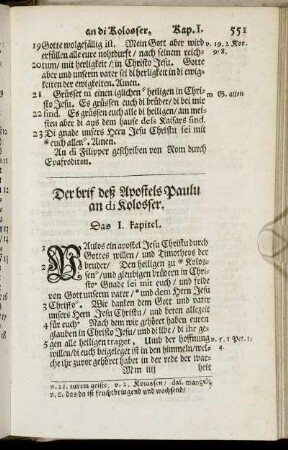 an di Kolosser. Kap. I. 551
19 Gotte wolgefällig ist. Mein Gott aber wird v. 19. 2 Kor.
erfüllen alle eure nohtdurft / nach seinem reich- 9/8.
20 tum / mit herligkeit / in Christo Jesu. Gotte
aber und unserm vater sei di herligkeit in di ewig-
keiten der ewigkeiten. Amen.
21 Grüsset m einen iglichen * heiligen in Chri- m G. allen
sto Jesu. Es grüssen euch di brüder / di bei mir
22 sind. Es grüssen euch alle di heiligen / am mei-
sten aber di aus dem hause deß Kaisars sind.
23 Di gnade unsers Herrn Jesu Christi sei mit
* euch allen. Amen.
An di Filipper geschriben von Rom durch
Epafroditon.
Der brif deß Apostels Paulu
an di Kolosser.
Das I. kapitel.
1 PAulos ein apostel Jesu Christu durch
Gottes willen / und Timotheos der
2 bruder / Den heiligen zu * Kolos-
sen / und gleubigen brüdern in Chri-
sto * Gnade sei mit euch / und fride
von Gott unserm vater / * und dem Herrn Jesu
3 Christo. Wir danken dem Gott und vater
unsers Herrn Jesu Christu / und beten allezeit
4 für euch * Nach dem wir gehöret haben euren
glauben in Christo Jesu / und di libe / di ihr ge-
5 gen alle heiligen traget, Umb der hoffnung v. 5. 1 Pet.
willen / di euch beigeleget ist in den himmeln / wel- 1/4.
che ihr zuvor gehöret habet in der rede der war-
M m iiij heit
v. 23. eurem geiste. v. 2. Kolassen /
v. 6. das da ist fruchtbringend und wachsend /